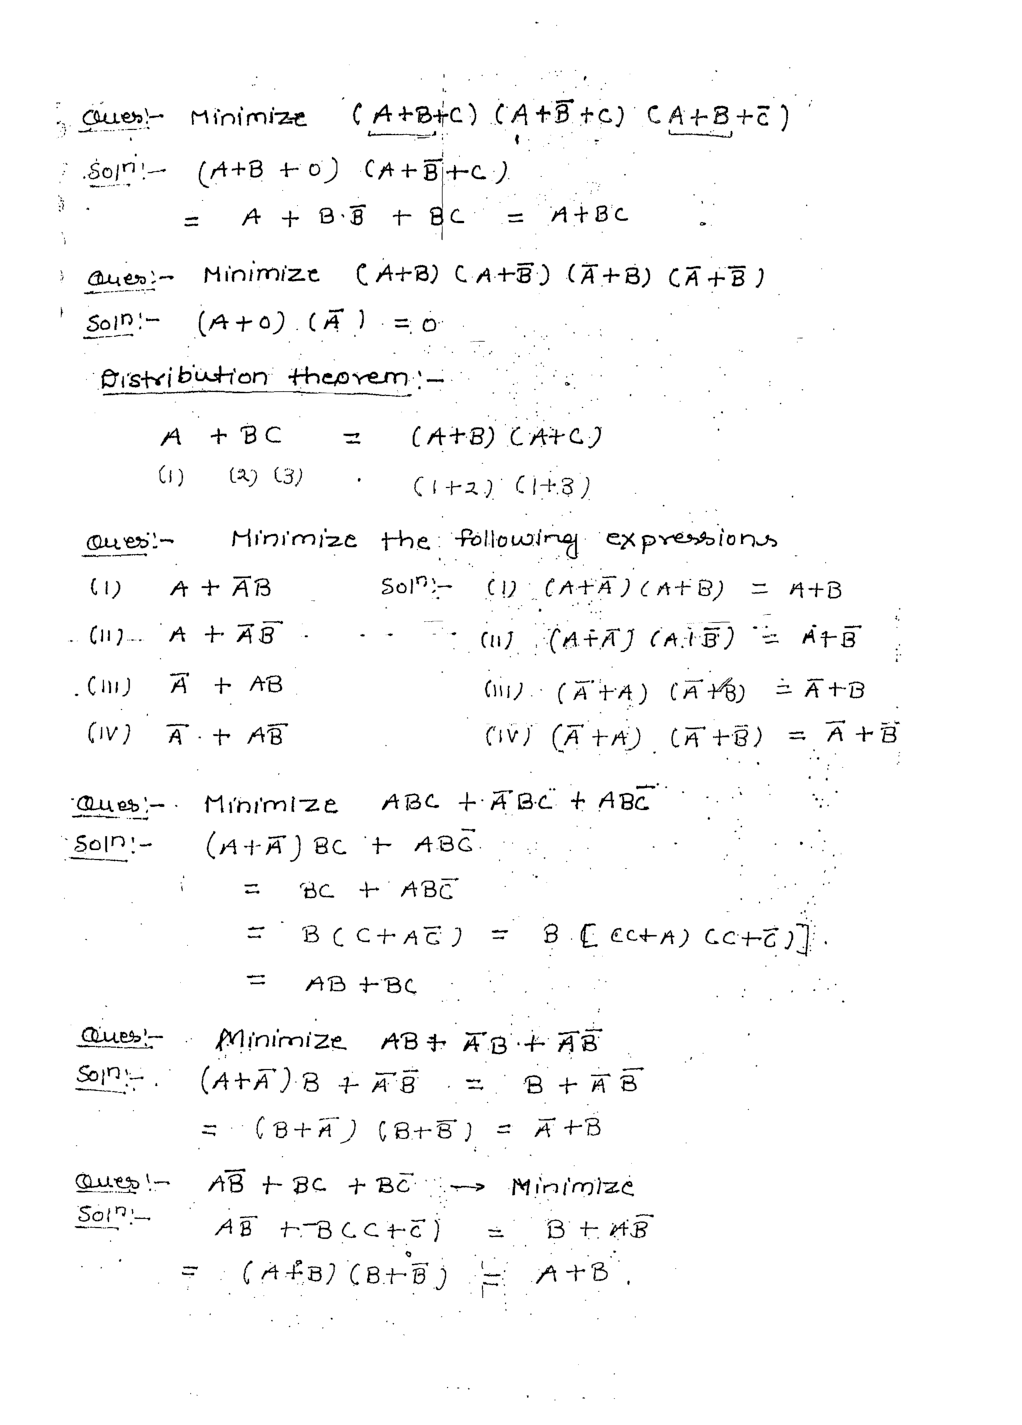 Ques:- Minimize (A+B+C) (A+B̅+C) (A+B+C̅)
Soln:- (A+B+0) (A+B̅+C)
= A + B·B̅ + BC = A+BC
Ques:- Minimize (A+B) (A+B̅) (A̅+B) (A̅+B̅)
Soln:- (A+0) (A̅) = 0
Distribution theorem:-
A + BC = (A+B) (A+C)
(1) (2) (3) . (1+2) (1+3)
Ques:- Minimize the following expressions
(I) A + A̅B Soln:- (I) (A+A̅) (A+B) = A+B
(II) A + A̅B̅ (II) (A+A̅) (A+B̅) = A+B̅
(III) A̅ + AB (III) (A̅+A) (A̅+B) = A̅+B
(IV) A̅ + AB̅ (IV) (A̅+A) (A̅+B̅) = A̅+B̅
Ques:- Minimize ABC + A̅BC + ABC̅
Soln:- (A+A̅)BC + ABC̅
= BC + ABC̅
= B(C+AC̅) = B[(C+A) (C+C̅)].
= AB + BC
Ques:- Minimize AB + A̅B + A̅B̅
Soln:- (A+A̅)B + A̅B̅ = B + A̅B̅
= (B+A̅) (B+B̅) = A̅+B
Ques:- AB̅ + BC + BC̅ → Minimize
Soln:- AB̅ + B(C+C̅) = B + AB̅
= (A+B) (B+B̅) = A+B.